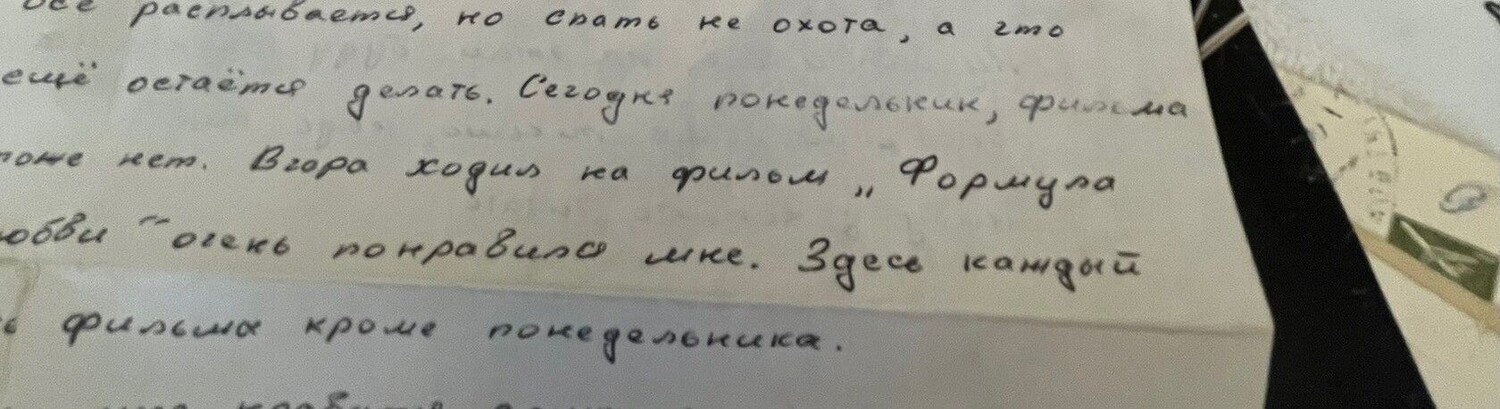 все расплывается, но спать не охота, а что
ещё остаётся делать. Сегодня понедельник, фильма
тоже нет. Вчора ходил на фильм „Формула
любви" очень понравился мне. Здесь каждый
фильма кроме понедельника.